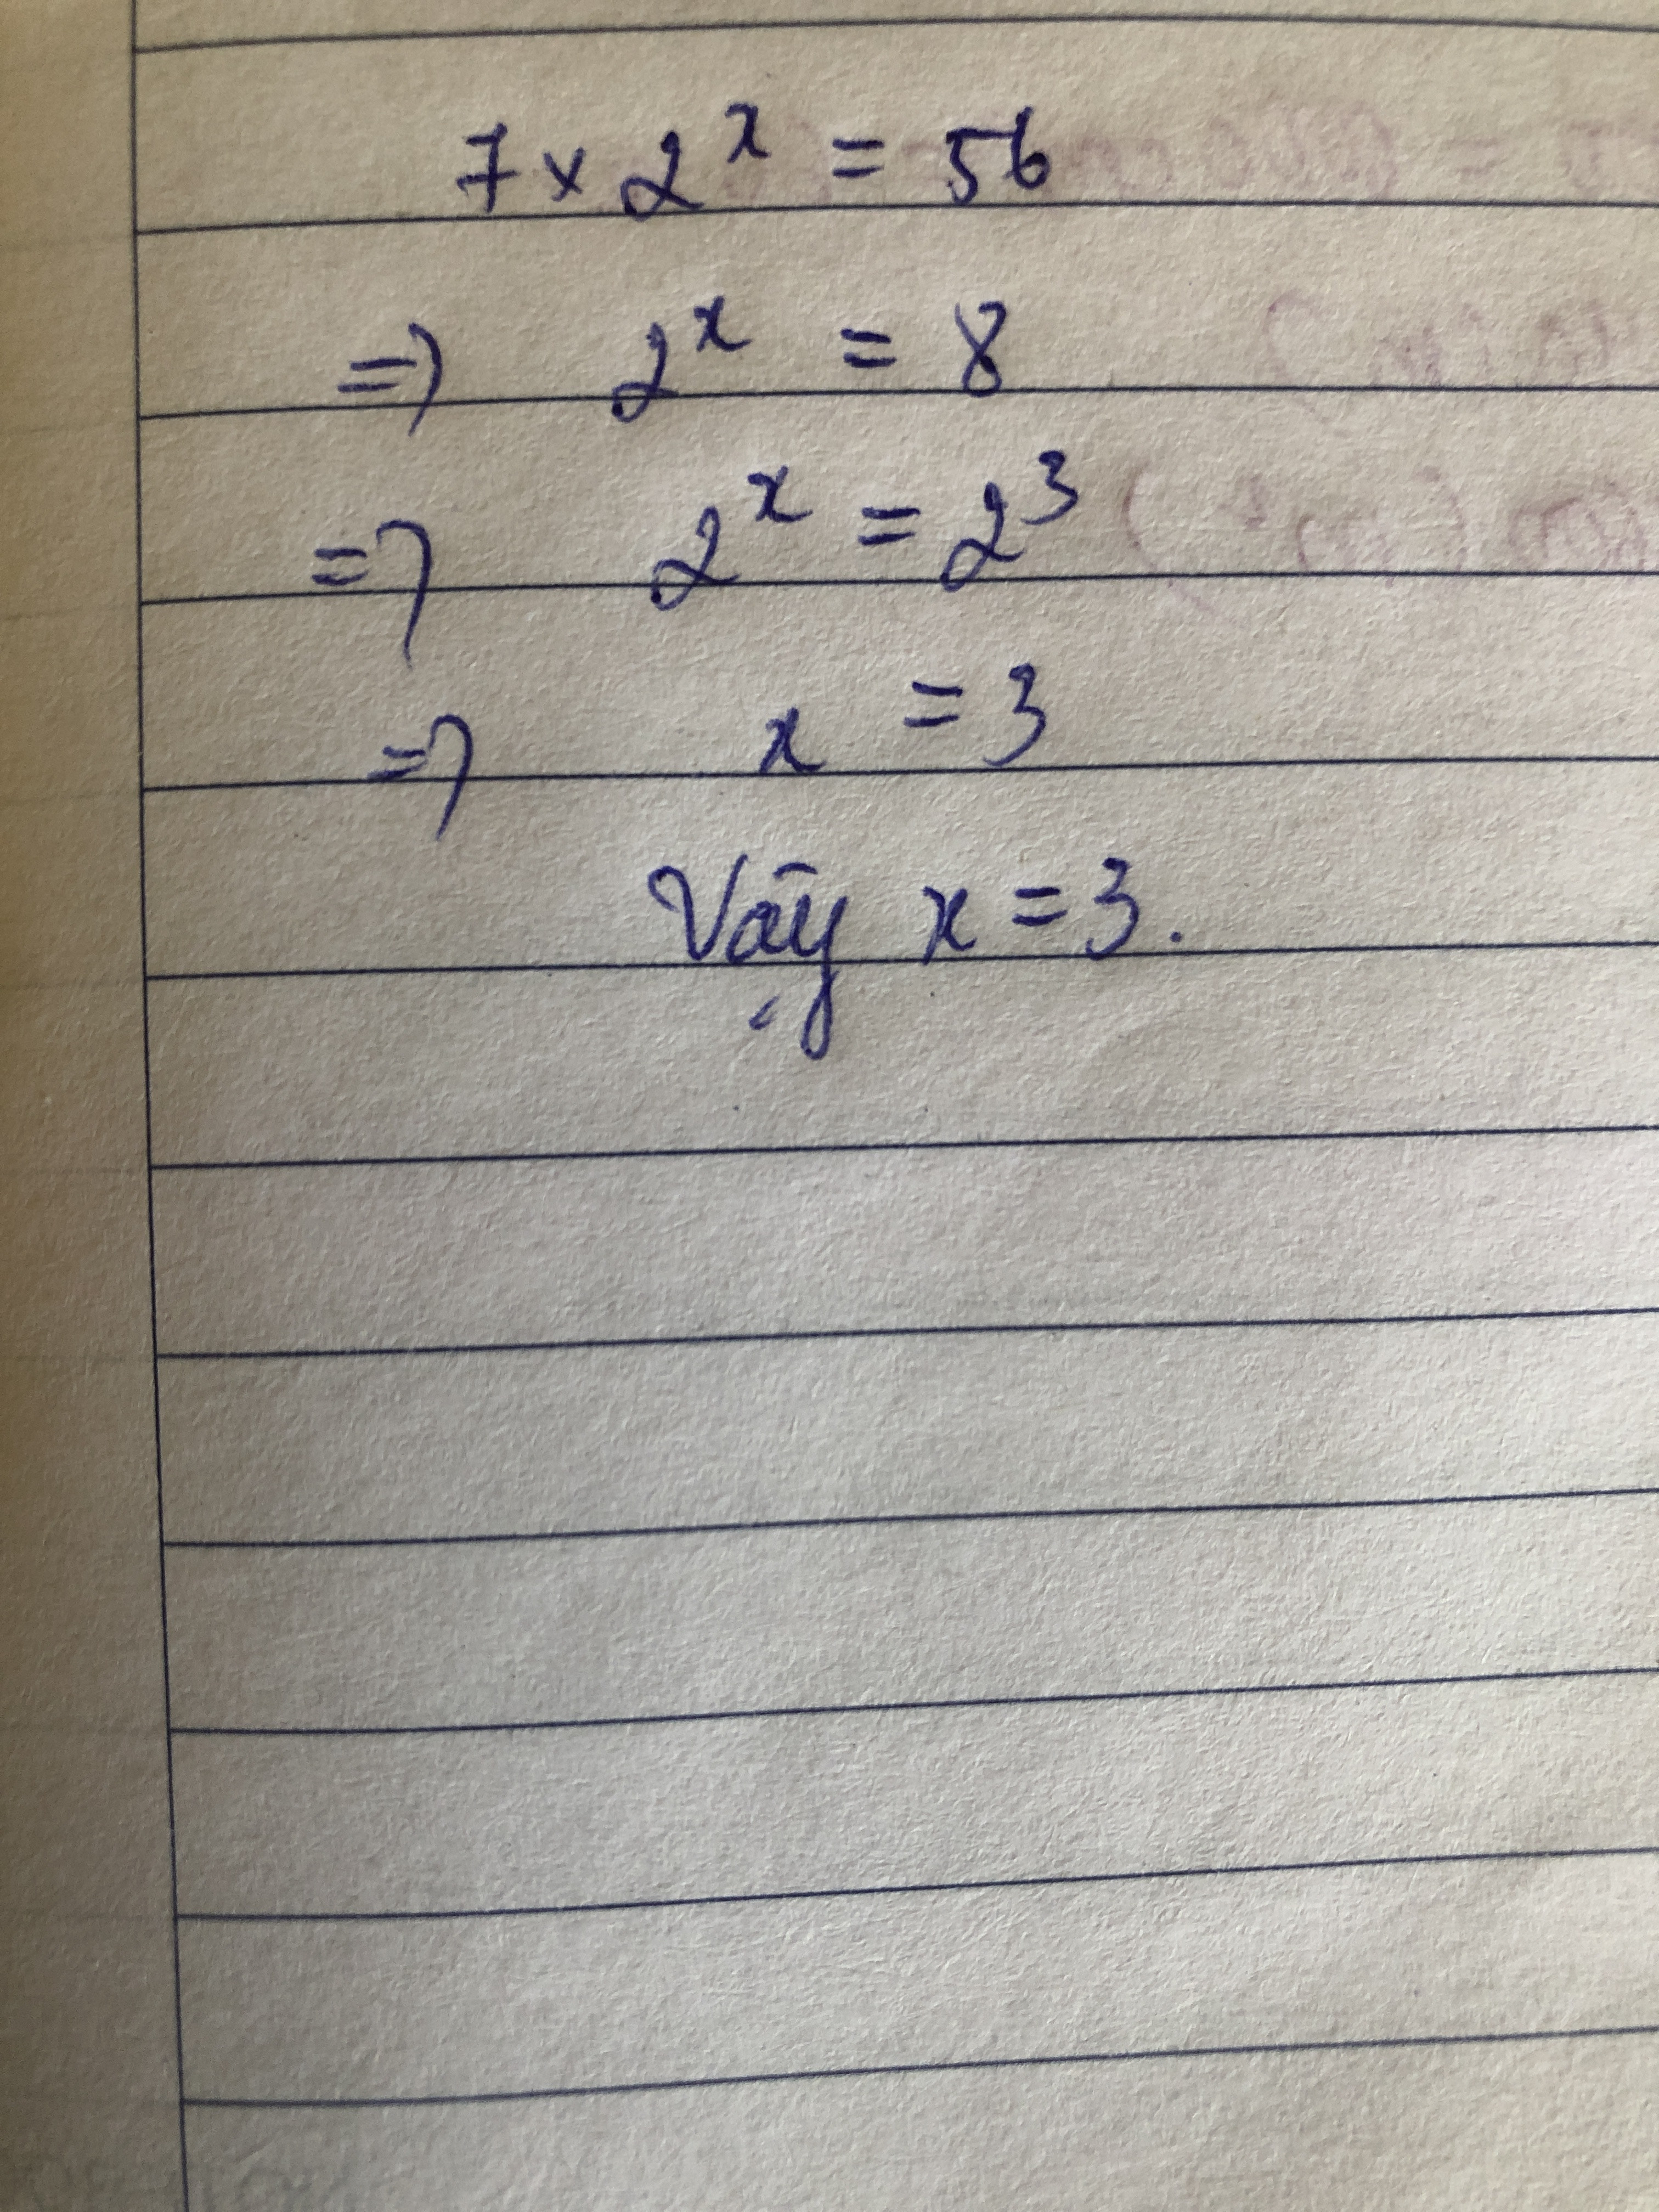 7 × 2ˣ = 56
=> 2ˣ = 8
=> 2ˣ = 2³
=> x = 3
Vậy x = 3.